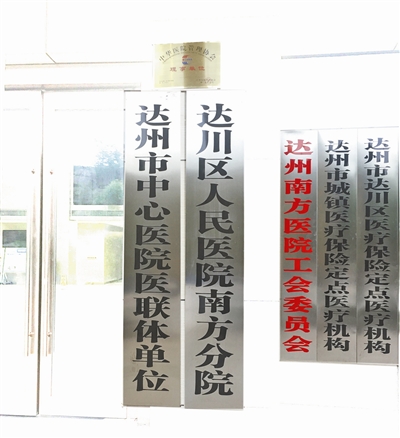 中华医院管理协会
理事单位
达州市中心医院医联体单位
达川区人民医院南方分院
达州南方医院工会委员会
达州市城镇医疗保险定点医疗机构
达州市达川区医疗保险定点医疗机构